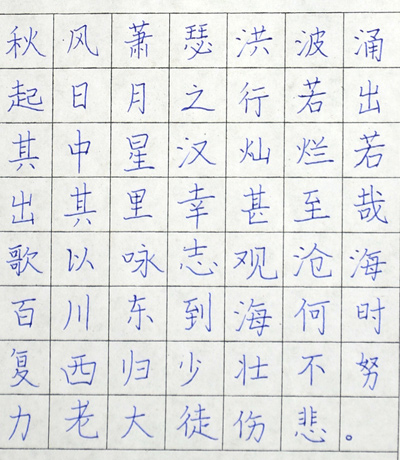 秋风萧瑟洪波涌
起日月之行若出
其中星汉灿烂若
出其里幸甚至哉
歌以咏志观沧海
百川东到海何时
复西归少壮不努
力老大徒伤悲。